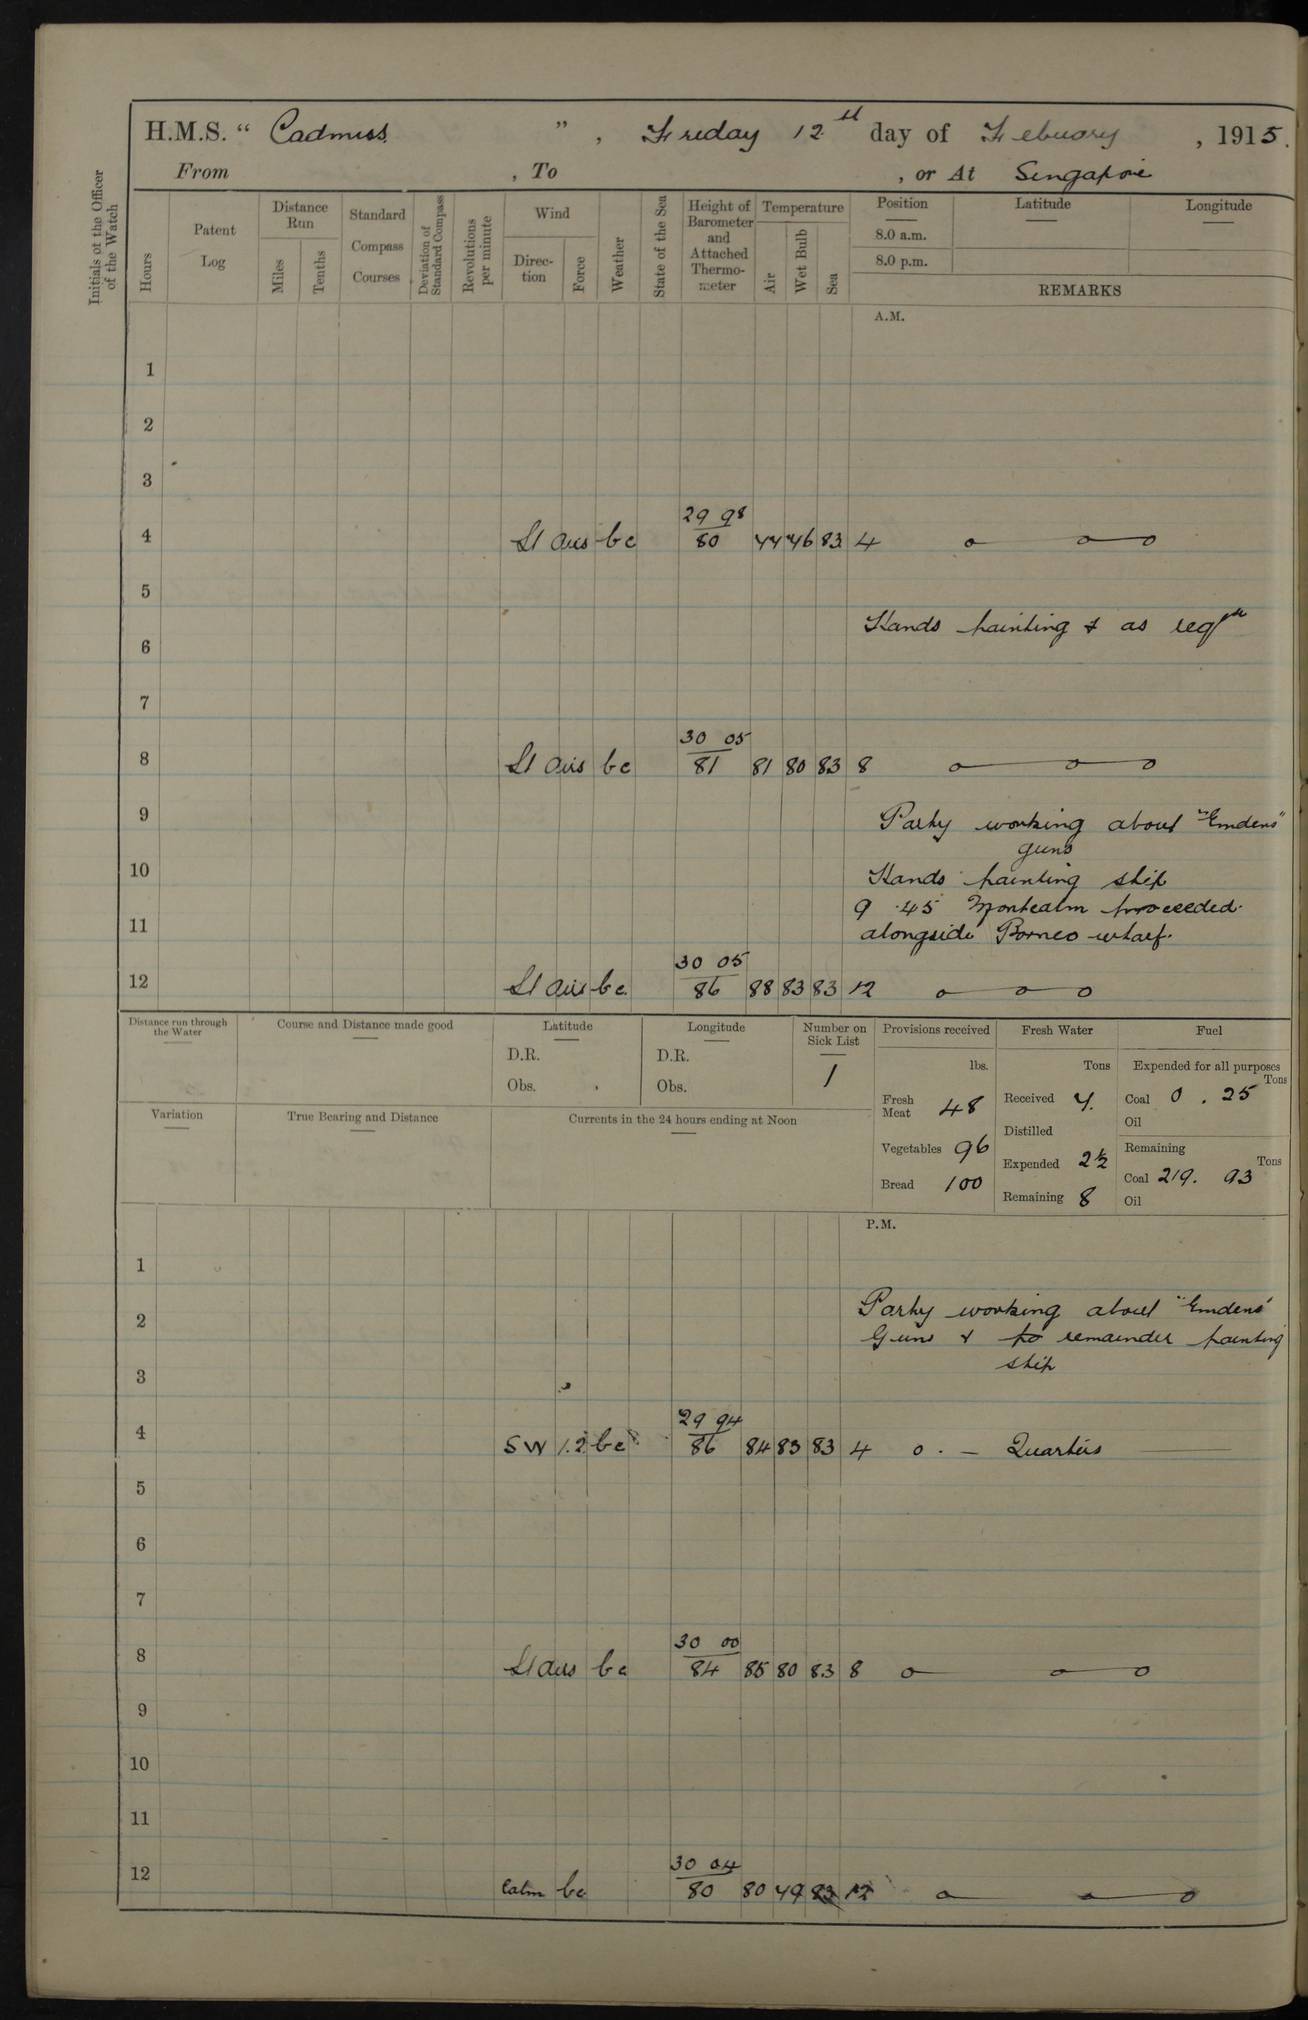 H.M.S. " Cadmuss " , Friday 12th day of Febuary , 1915.
From , To , or At Singapore
Initials of the Officer of the Watch
Hours
Patent Log
Distance Run
Miles
Tenths
Standard Compass Courses
Deviation of Standard Compass
Revolutions per minute
Wind
Direction
Force
Weather
State of the Sea
Height of Barometer and Attached Thermometer
Temperature
Air
Wet Bulb
Sea
Position
8.0 a.m.
8.0 p.m.
Latitude
Longitude
REMARKS
A.M.
1
2
3
29 98
4 Lt airs bc 80 77 76 83 4
5
Hands painting & as reqte
6
7
30 05
8 Lt airs bc 81 81 80 83 8
9 Party working about "Emdens"
guns
10 Hands painting ship
9.45 Montcalm proceeded
11 alongside Borneo wharf.
30 05
12 Lt airs bc 86 88 83 83 12
Distance run through the Water
Course and Distance made good
Latitude
D.R.
Obs.
Longitude
D.R.
Obs.
Number on Sick List
1
Provisions received
lbs.
Fresh Meat 48
Vegetables 96
Bread 100
Fresh Water
Tons
Received 7.
Distilled
Expended 2½
Remaining 8
Fuel
Expended for all purposes
Tons
Coal 0 . 25
Oil
Remaining
Tons
Coal 219. 93
Oil
Variation
True Bearing and Distance
Currents in the 24 hours ending at Noon
P.M.
1
Party working about "Emdens"
2 Guns & remainder painting
ship
3
29 94
4 SW 1.2 bc 86 84 83 83 4 Quarters
5
6
7
30 00
8 Lt airs bc 84 85 80 83 8
9
10
11
30 04
12 Calm bc 80 80 79 83 12